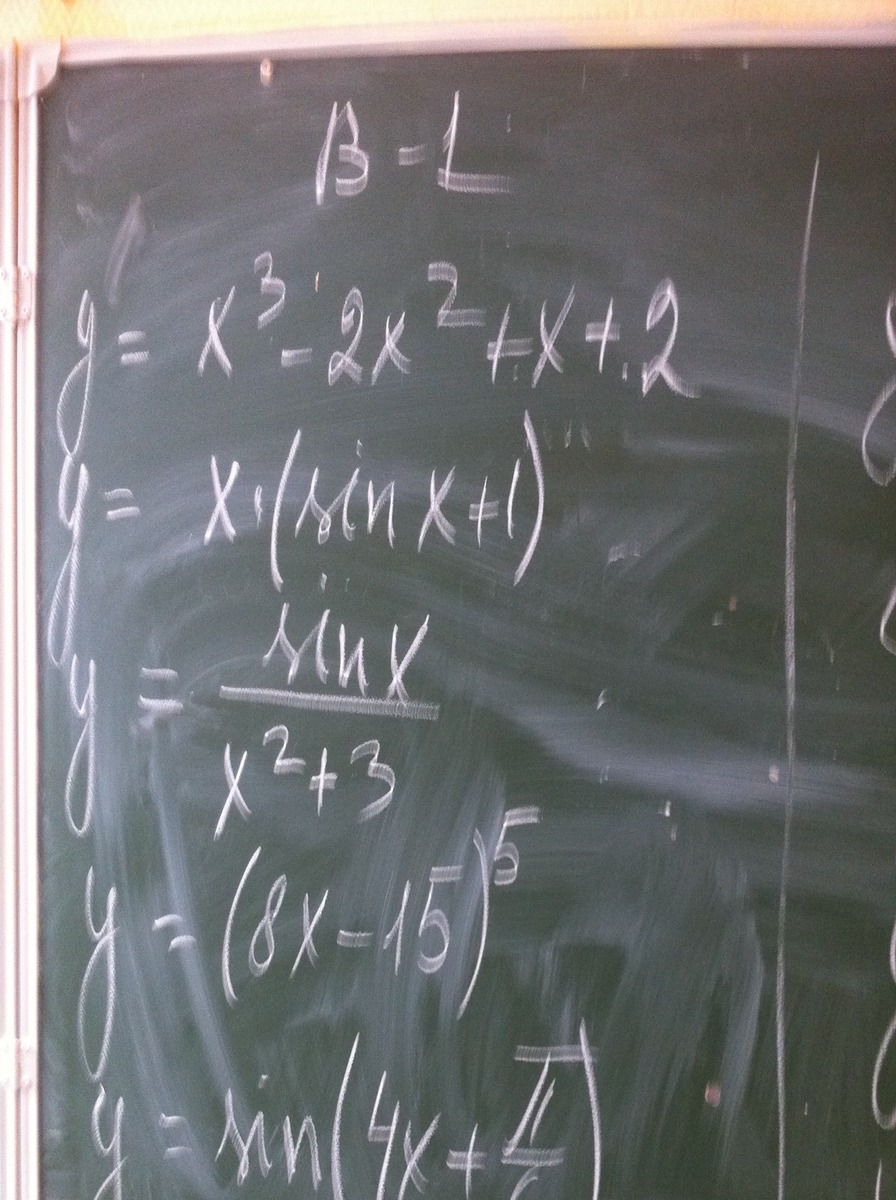 В-1
y = x³ - 2x² + x + 2
y = x·(sin x + 1)
y = sin x / (x² + 3)
y = (8x - 15)⁵
y = sin(4x + π/